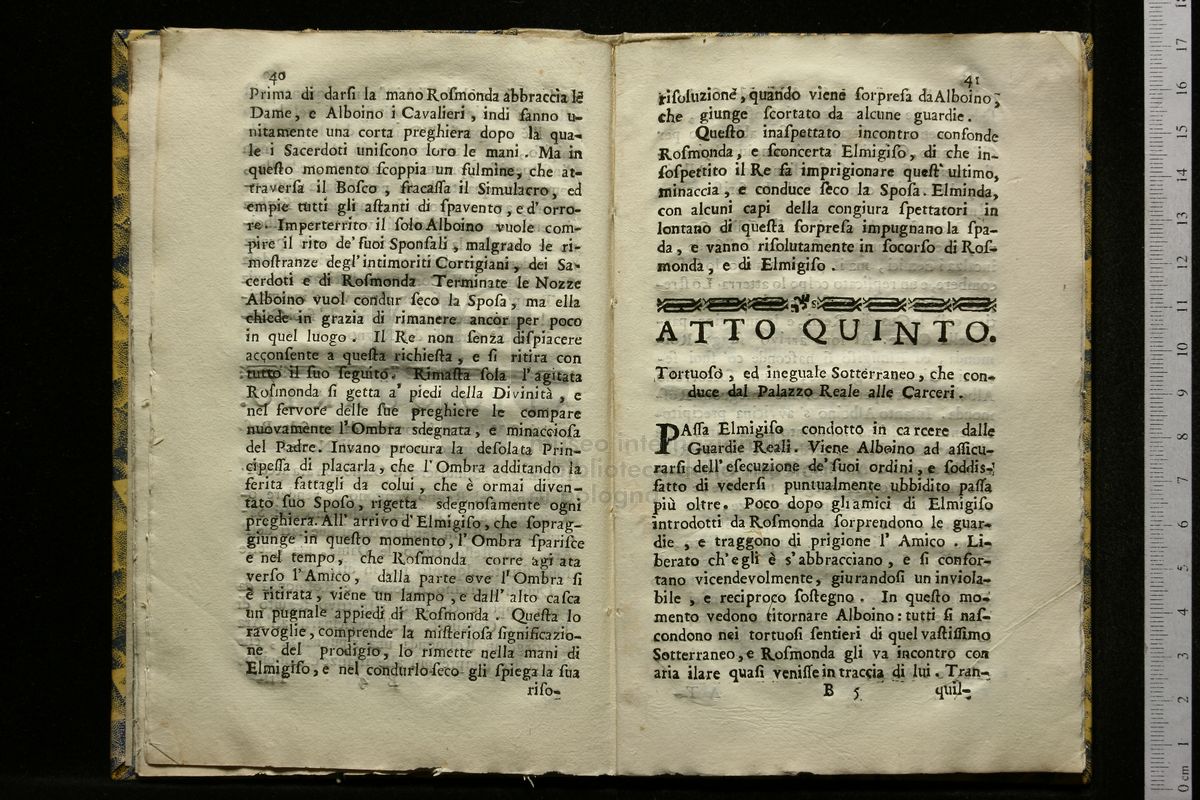 40
Prima di darſi la mano Roſmonda abbraccia le
Dame, e Alboino i Cavalieri, indi fanno u-
nitamente una corta preghiera dopo la qua-
le i Sacerdoti uniſcono loro le mani. Ma in
queſto momento ſcoppia un fulmine, che at-
traverſa il Boſco, fracaſſa il Simulacro, ed
empie tutti gli aſtanti di ſpavento, e d' orro-
re. Imperterrito il ſolo Alboino vuole com-
pire il rito de' ſuoi Sponſali, malgrado le ri-
moſtranze degl' intimoriti Cortigiani, dei Sa-
cerdoti e di Roſmonda Terminate le Nozze
Alboino vuol condur ſeco la Spoſa, ma ella
chiede in grazia di rimanere ancor per poco
in quel luogo. Il Re non ſenza diſpiacere
acconſente a queſta richieſta, e ſi ritira con
tutto il ſuo ſeguito. Rimaſta ſola l' agitata
Roſmonda ſi getta a' piedi della Divinità, e
nel fervore delle ſue preghiere le compare
nuovamente l' Ombra sdegnata, e minaccioſa
del Padre. Invano procura la deſolata Prin-
cipeſſa di placarla, che l' Ombra additando la
ferita fattagli da colui, che è ormai diven-
tato ſuo Spoſo, rigetta sdegnoſamente ogni
preghiera. All' arrivo d' Elmigiſo, che ſoprag-
giunge in queſto momento, l' Ombra ſpariſce
e nel tempo, che Roſmonda corre agi ata
verſo l' Amico, dalla parte ove l' Ombra ſi
è ritirata, viene un lampo, e dall' alto caſca
un pugnale appiedi di Roſmonda. Queſta lo
ravoglie, comprende la miſterioſa ſignificazio-
ne del prodigio, lo rimette nella mani di
Elmigiſo, e nel condurlo ſeco gli ſpiega la ſua
riſo-
41
riſoluzione, quando viene ſorpreſa da Alboino,
che giunge ſcortato da alcune guardie.
Queſto inaſpettato incontro confonde
Roſmonda, e ſconcerta Elmigiſo, di che in-
ſoſpettito il Re fa imprigionare queſt' ultimo,
minaccia, e conduce ſeco la Spoſa. Elminda,
con alcuni capi della congiura ſpettatori in
lontano di queſta ſorpreſa impugnano la ſpa-
da, e vanno riſolutamente in ſocorſo di Roſ-
monda, e di Elmigiſo.
ATTO QUINTO.
Tortuoſo, ed ineguale Sotterraneo, che con-
duce dal Palazzo Reale alle Carceri.
PAſſa Elmigiſo condotto in carcere dalle
Guardie Reali. Viene Alboino ad aſſicu-
rarſi dell' eſecuzione de' ſuoi ordini, e ſoddis-
fatto di vederſi puntualmente ubbidito paſſa
più oltre. Poco dopo gli amici di Elmigiſo
introdotti da Roſmonda ſorprendono le guar-
die, e traggono di prigione l' Amico. Li-
berato ch' egli è s' abbracciano, e ſi confor-
tano vicendevolmente, giurandoſi un inviola-
bile, e reciproco ſoſtegno. In queſto mo-
mento vedono titornare Alboino: tutti ſi naſ-
condono nei tortuoſi ſentieri di quel vaſtiſſimo
Sotterraneo, e Roſmonda gli va incontro con
aria ilare quaſi veniſſe in traccia di lui. Tran-
B 5
quil-